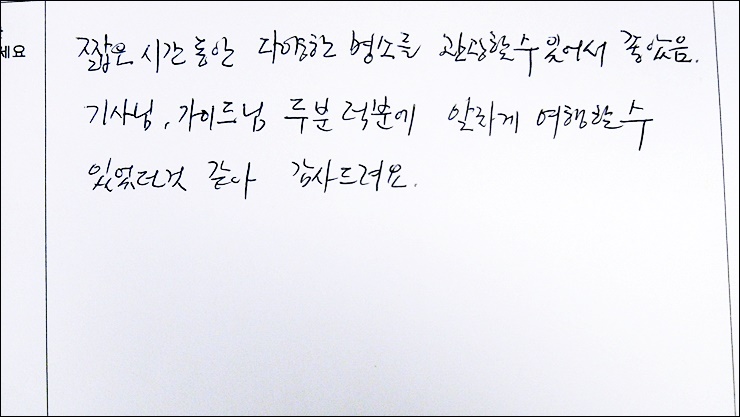 세요
짧은 시간 동안 다양한 명소를 관광할 수 있어서 좋았음.
기사님, 가이드님 두분 덕분에 알차게 여행할 수
있었던것 같아 감사드려요.